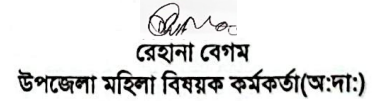 রেহানা বেগম
উপজেলা মহিলা বিষয়ক কর্মকর্তা(অ:দা:)